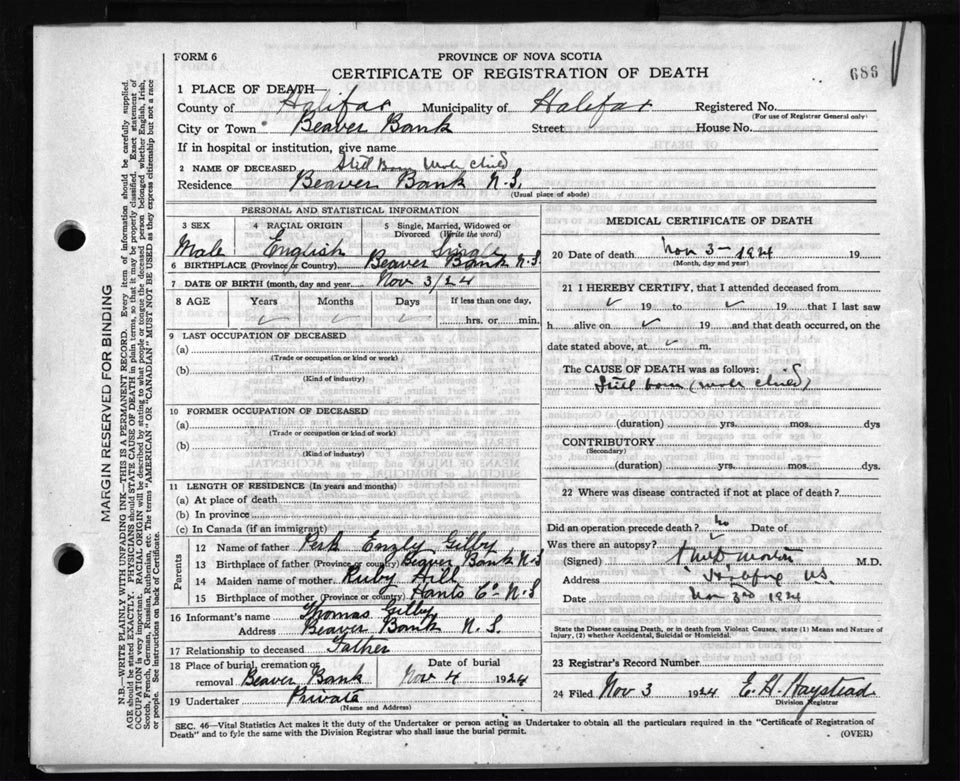 FORM 6
PROVINCE OF NOVA SCOTIA
CERTIFICATE OF REGISTRATION OF DEATH
686
1 PLACE OF DEATH—
County of Halifax Municipality of Halifax Registered No.
(For use of Registrar General only)
City or Town Beaver Bank Street House No.
If in hospital or institution, give name
2 NAME OF DECEASED Still Born Male Child
Residence Beaver Bank N.S.
(Usual place of abode)
PERSONAL AND STATISTICAL INFORMATION
3 SEX 4 RACIAL ORIGIN 5 Single, Married, Widowed or Divorced (Write the word)
Male English Single
6 BIRTHPLACE (Province or Country) Beaver Bank N.S.
7 DATE OF BIRTH (month, day and year) Nov 3/24
8 AGE Years Months Days If less than one day,
hrs. or min.
9 LAST OCCUPATION OF DECEASED
(a)
(Trade or occupation or kind or work)
(b)
(Kind of industry)
10 FORMER OCCUPATION OF DECEASED
(a)
(Trade or occupation or kind of work)
(b)
(Kind of industry)
11 LENGTH OF RESIDENCE (In years and months)
(a) At place of death
(b) In province
(c) In Canada (if an immigrant)
Parents
12 Name of father Gilby
13 Birthplace of father (Province or country) Beaver Bank N S
14 Maiden name of mother Ruby Hill
15 Birthplace of mother (Province or country) Hants Co N.S
16 Informant's name Thomas Gilby
Address Beaver Bank N.S.
17 Relationship to deceased Father
18 Place of burial, cremation or removal Beaver Bank Date of burial Nov 4 1924
19 Undertaker Private
(Name and Address)
MEDICAL CERTIFICATE OF DEATH
20 Date of death Nov 3 - 1924 19
(Month, day and year)
21 I HEREBY CERTIFY, that I attended deceased from
19 to 19 that I last saw
h alive on 19 and that death occurred, on the
date stated above, at m.
The CAUSE OF DEATH was as follows:
Still born (male child)
(duration) yrs. mos. dys
CONTRIBUTORY
(Secondary)
(duration) yrs. mos. dys.
22 Where was disease contracted if not at place of death?
Did an operation precede death? no Date of
Was there an autopsy?
(Signed) M.D.
Address Halifax NS.
Date Nov 3rd 1924
State the Disease causing Death, or in death from Violent Causes, state (1) Means and Nature of
Injury, (2) whether Accidental, Suicidal or Homicidal.
23 Registrar's Record Number
24 Filed Nov 3 1924 E. H. Haystead
Division Registrar
SEC. 46—Vital Statistics Act makes it the duty of the Undertaker or person acting as Undertaker to obtain all the particulars required in the "Certificate of Registration of
Death" and to fyle the same with the Division Registrar who shall issue the burial permit.
(OVER)
MARGIN RESERVED FOR BINDING
N.B.—WRITE PLAINLY WITH UNFADING INK—THIS IS A PERMANENT RECORD. Every item of information should be carefully supplied.
AGE should be stated EXACTLY. PHYSICIANS should STATE CAUSE OF DEATH in plain terms, so that it may be properly classified. Exact statement of
OCCUPATION is very important. RACIAL ORIGIN will be described by stating to what people or tongue the deceased person belonged whether English, Irish,
Scotch, French, German, Russian, Ruthenian, etc. The terms "AMERICAN" OR "CANADIAN" MUST NOT BE USED as they express citizenship but not a race
or people. See instructions on back of Certificate.